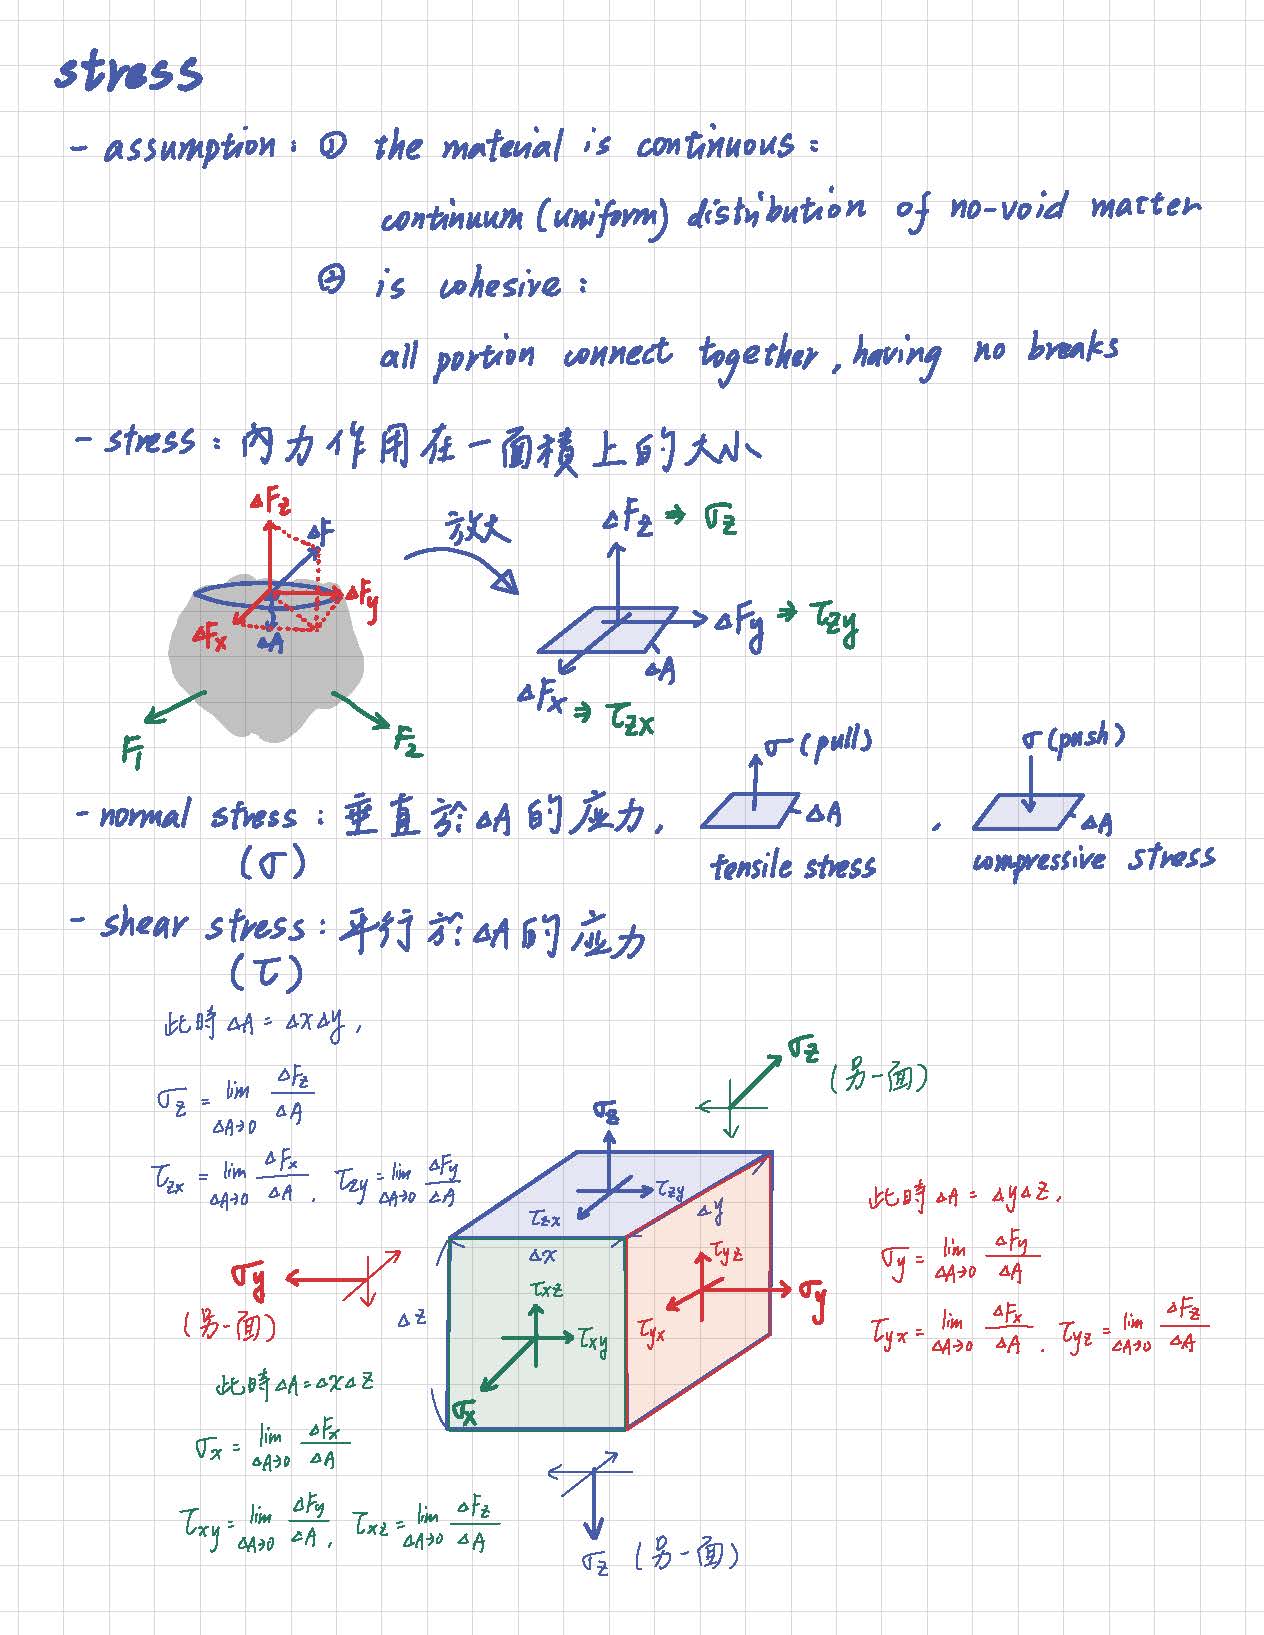 stress
- assumption: ① the material is continuous:
continuum (uniform) distribution of no-void matter
② is cohesive:
all portion connect together, having no breaks
- stress: 內力作用在一面積上的大小
ΔFz
ΔF
ΔFy
ΔFx
ΔA
F1
F2
放大
ΔFz ⇒ σz
ΔFy ⇒ τzy
ΔA
ΔFx ⇒ τzx
- normal stress: 垂直於ΔA的应力,
(σ)
σ (pull)
ΔA
tensile stress
,
σ (push)
ΔA
compressive stress
- shear stress: 平行於ΔA的应力
(τ)
此時 ΔA = ΔxΔy,
σz = lim ΔA→0 ΔFz/ΔA
τzx = lim ΔA→0 ΔFx/ΔA, τzy = lim ΔA→0 ΔFy/ΔA
σz
(另一面)
σz
τzy
τzx
Δy
Δx
Δz
τxz
τxy
σx
τyz
τyx
σy
σy
(另一面)
此時 ΔA = ΔyΔz,
σy = lim ΔA→0 ΔFy/ΔA
τyx = lim ΔA→0 ΔFx/ΔA, τyz = lim ΔA→0 ΔFz/ΔA
此時 ΔA = ΔxΔz
σx = lim ΔA→0 ΔFx/ΔA
τxy = lim ΔA→0 ΔFy/ΔA, τxz = lim ΔA→0 ΔFz/ΔA
σz (另一面)